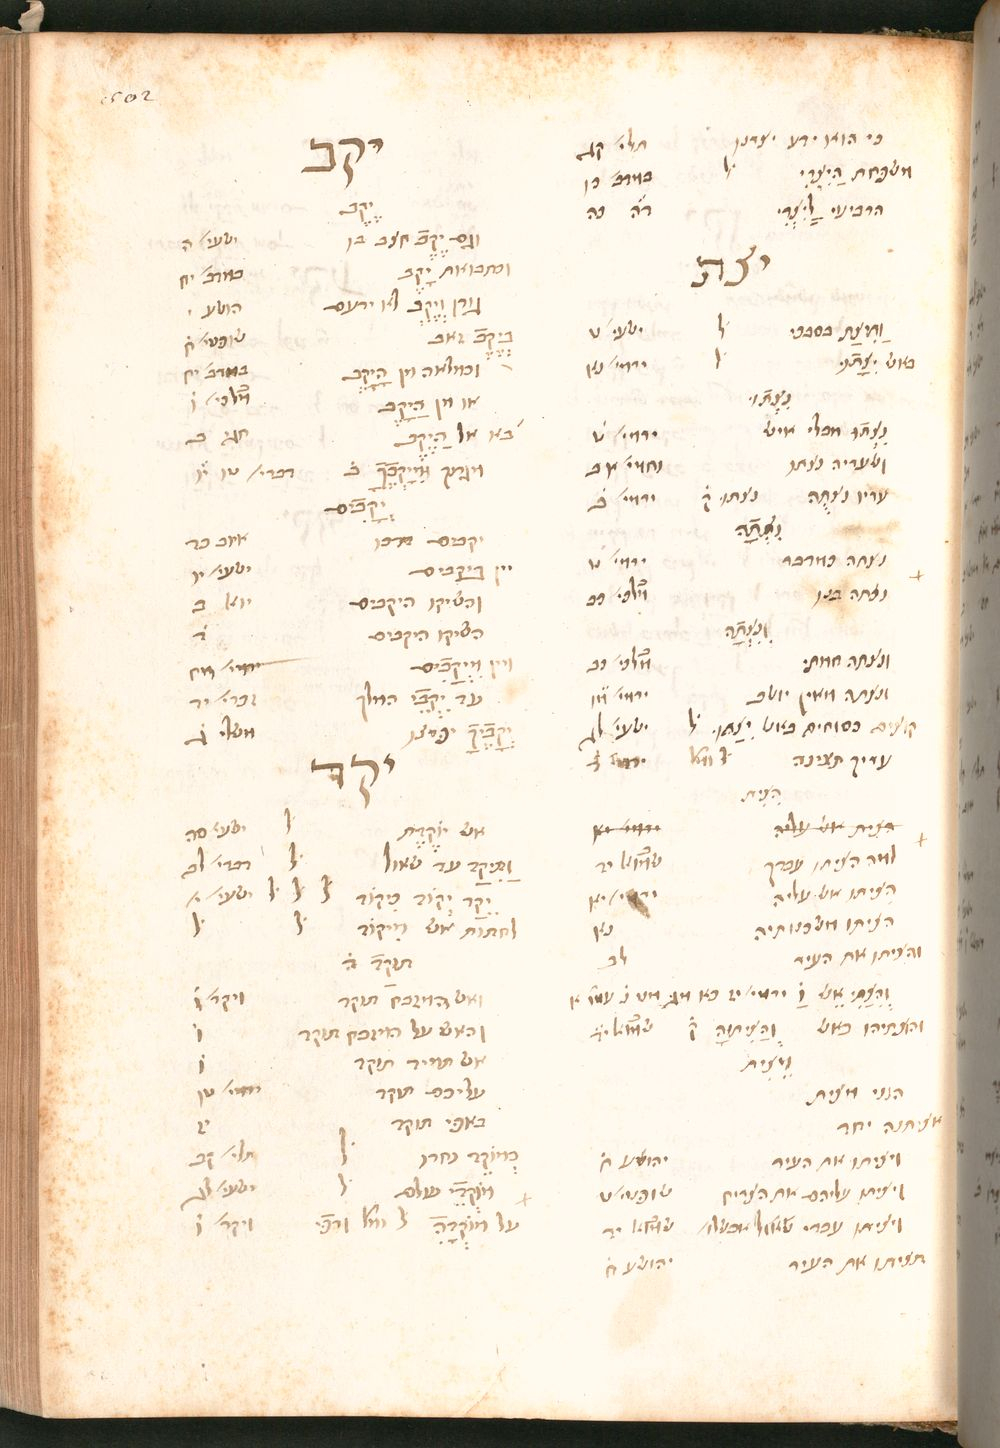 502
כי הוא ידע יצרנו תלי׳ קג
משפחת הַיִצְרִי ל׳ במדב׳ כו
הרביעי לַיִצְרִי ד״ה כה
יצת
וַתִּצַּת בסבכי ל׳ ישעי׳ ט
באש יִצַּתּוּ ל׳ ירמי׳ נא
נִצְּתוּ
נִצְּתוּ מבלי איש ירמי׳ ט
ושעריה נצתו נחמי׳ א ב
עריו נצתה נצתו ק׳ ירמי׳ ב
נִצְּתָה
נצתה כמדבר ירמי׳ ט
נצתה בנו מלכי׳ כב
וְנִצְּתָה
ונצתה חמתי מלכי׳ כב
ונצתה מאין יושב ירמי׳
קוצים כסוחים באש יִצַּתּוּ ל׳ ישעי׳ לג
עריך תצינה ל׳ ומל׳ ירמי׳
הִצִּית
הצית אש עליה ירמי׳ יא
למה הציתו עבדך שמוא׳ יד
הִצִּיתוּ אש עליה ירמי׳ יא
הציתו משכנותיה נא
והציתו את העיר לב
וְהִצַּתִּי אֵשׁ
והצתיהו באש וְהַצִּיתוּהָ ק׳ שמוא׳ יד
וַיַּצִּית
הנני מצית
אציתנה יחד
ויציתו את העיר יהושע ח
ויציתו עליהם את הצריח שופטי׳ ט
ויציתו עבדי אבשלו׳ שמוא׳ יד
תציתו את העיר יהושע ח
יקב
יֶקֶב
וגם יֶקֶב חצב בו ישעי׳ ה
וכתבואת יָקֶב במדב׳ יח
גורן וָיֶקֶב לא ירעם הושע י
בְיֶקֶב זאב שופטי׳ ז
וכמלאה מן הַיָּקֶב במדב׳ יח
או מן הַיֶּקֶב מלכי׳ ו
בא אל הַיֶּקֶב חגי ב
מגרנך וּמִיִּקְבֶךָ ב׳ דברי׳ טו יו
יְקָבִים
יקבים דרכו איוב כד
יין בַּיְקָבִים ישעי׳ יו
והשיקו היקבים יואל ב
השיקו היקבים ד
ויין מִיְקָבִים ירמי׳ מח
עד יִקְבֵי המלך זכרי׳ יד
יְקָבֶיךָ יפרצו משלי ג
יקד
אש יוֹקֶדֶת ל׳ ישעי׳ סה
וַתִּיקַד עד שאול ל׳ דברי׳ לב
יֵקַד יְקוֹד כִּיקוֹד ל׳ ל׳ ל׳ ישעי׳ י
לחתות אש מִיקוֹד ל׳ ל׳
תוּקַד ה׳
ואש המזבח תוקד ויקר׳ ו
והאש על המזבח תוקד ו
אש תמיד תוקד ו
עליכם תוקד ירמי׳ טו
באפי תוקד יז
כְּמוֹקֵד נחרו ל׳ תלי׳ קב
מוֹקְדֵי עולם ל׳ ישעי׳ לג
על מוֹקְדָה ל׳ ומל׳ ויקר׳ ו